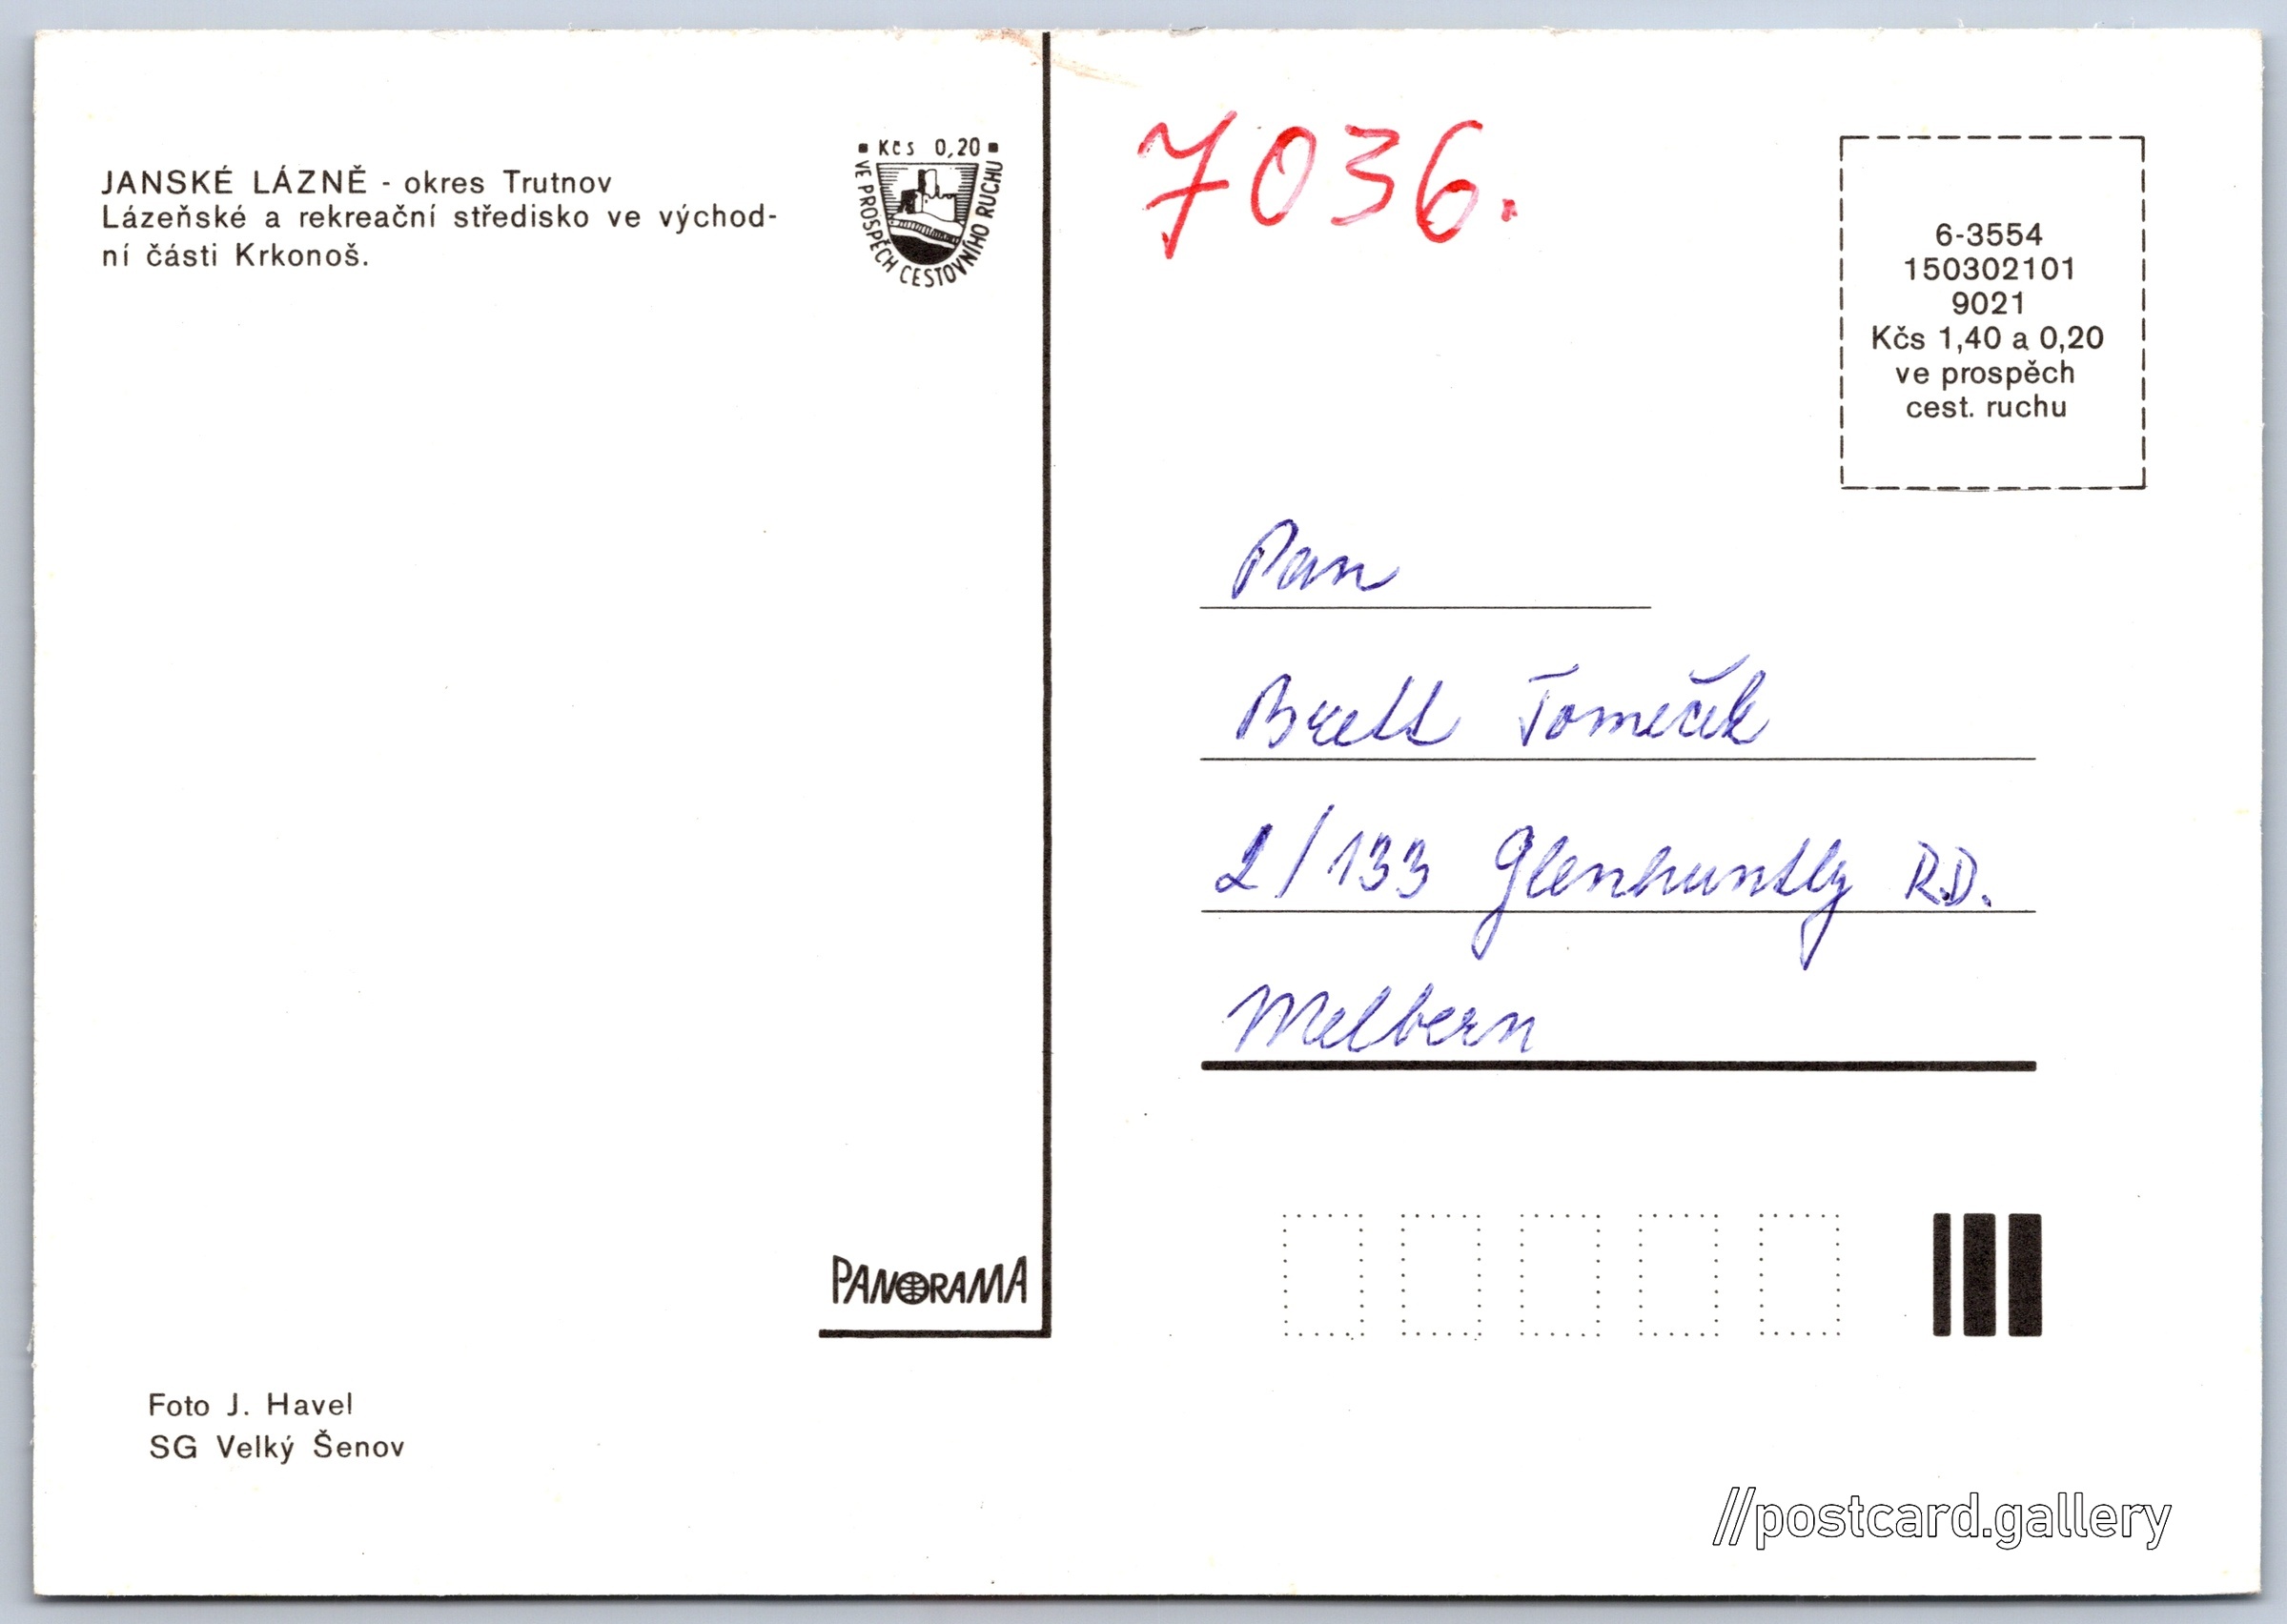 JANSKÉ LÁZNĚ - okres Trutnov
Lázeňské a rekreační středisko ve východ-
ní části Krkonoš.
Kčs 0,20
VE PROSPĚCH CESTOVNÍHO RUCHU
PANORAMA
Foto J. Havel
SG Velký Šenov
7036.
6-3554
150302101
9021
Kčs 1,40 a 0,20
ve prospěch
cest. ruchu
Pan
Brett Tomeček
2/133 Glenhuntly R.D.
Melbern
//postcard.gallery